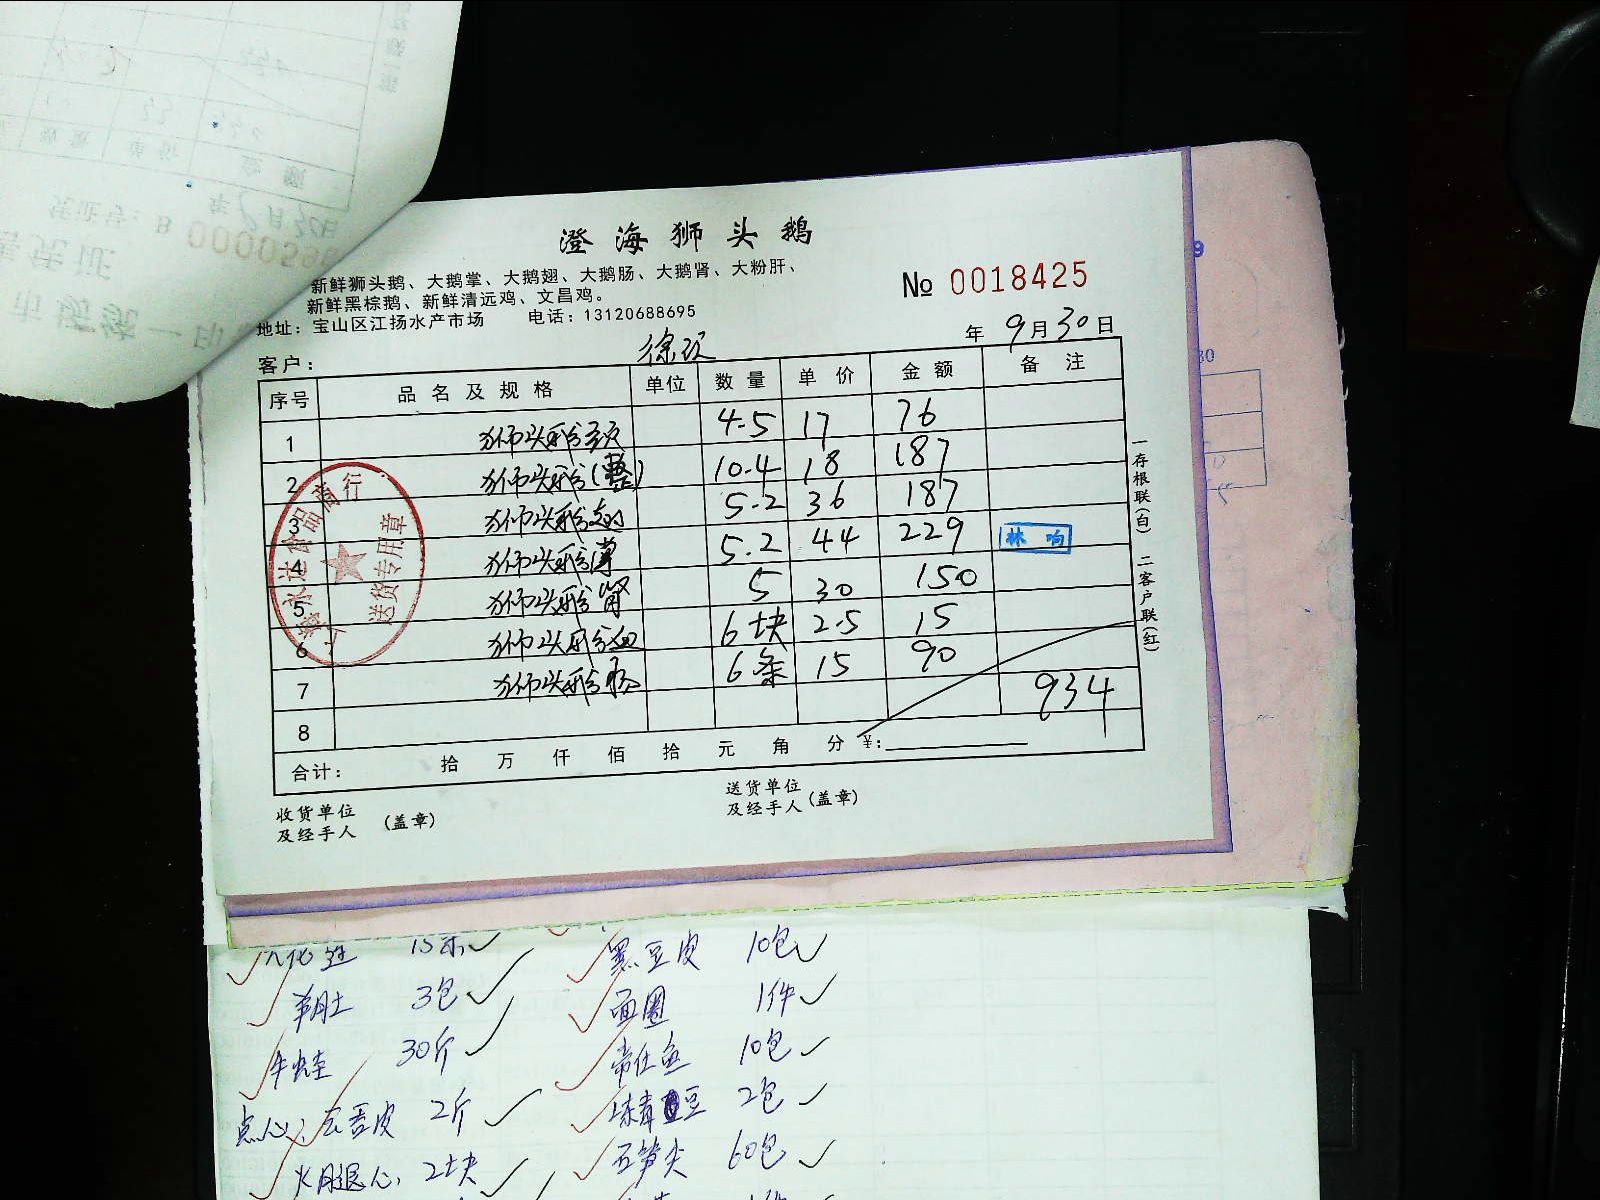 澄海狮头鹅
新鲜狮头鹅、大鹅掌、大鹅翅、大鹅肠、大鹅肾、大粉肝、
新鲜黑棕鹅、新鲜清远鸡、文昌鸡。
地址：宝山区江扬水产市场 电话：13120688695
№ 0018425
年 9月30日
客户：
序号 品名及规格 单位 数量 单价 金额 备注
1 狮头鹅头 4.5 17 76
2 狮头鹅(整) 10.4 18 187
3 狮头鹅翅 5.2 36 187
4 狮头鹅掌 5.2 44 229 林响
5 狮头鹅肾 5 30 150
6 狮头鹅血 6块 2.5 15
7 狮头鹅肠 6条 15 90
934
8
合计： 拾 万 仟 佰 拾 元 角 分 ¥：
收货单位
及经手人 (盖章)
送货单位
及经手人 (盖章)
一存根联(白) 二客户联(红)
永达食品商行
送货专用章
凭证号：B 0000590
年 月30日
黑豆皮 10包
羊肚 3包
面圈 1件
牛蛙 30斤
10包
点心： 皮 2斤
豆 2包
火腿心 2块
笋尖 60包